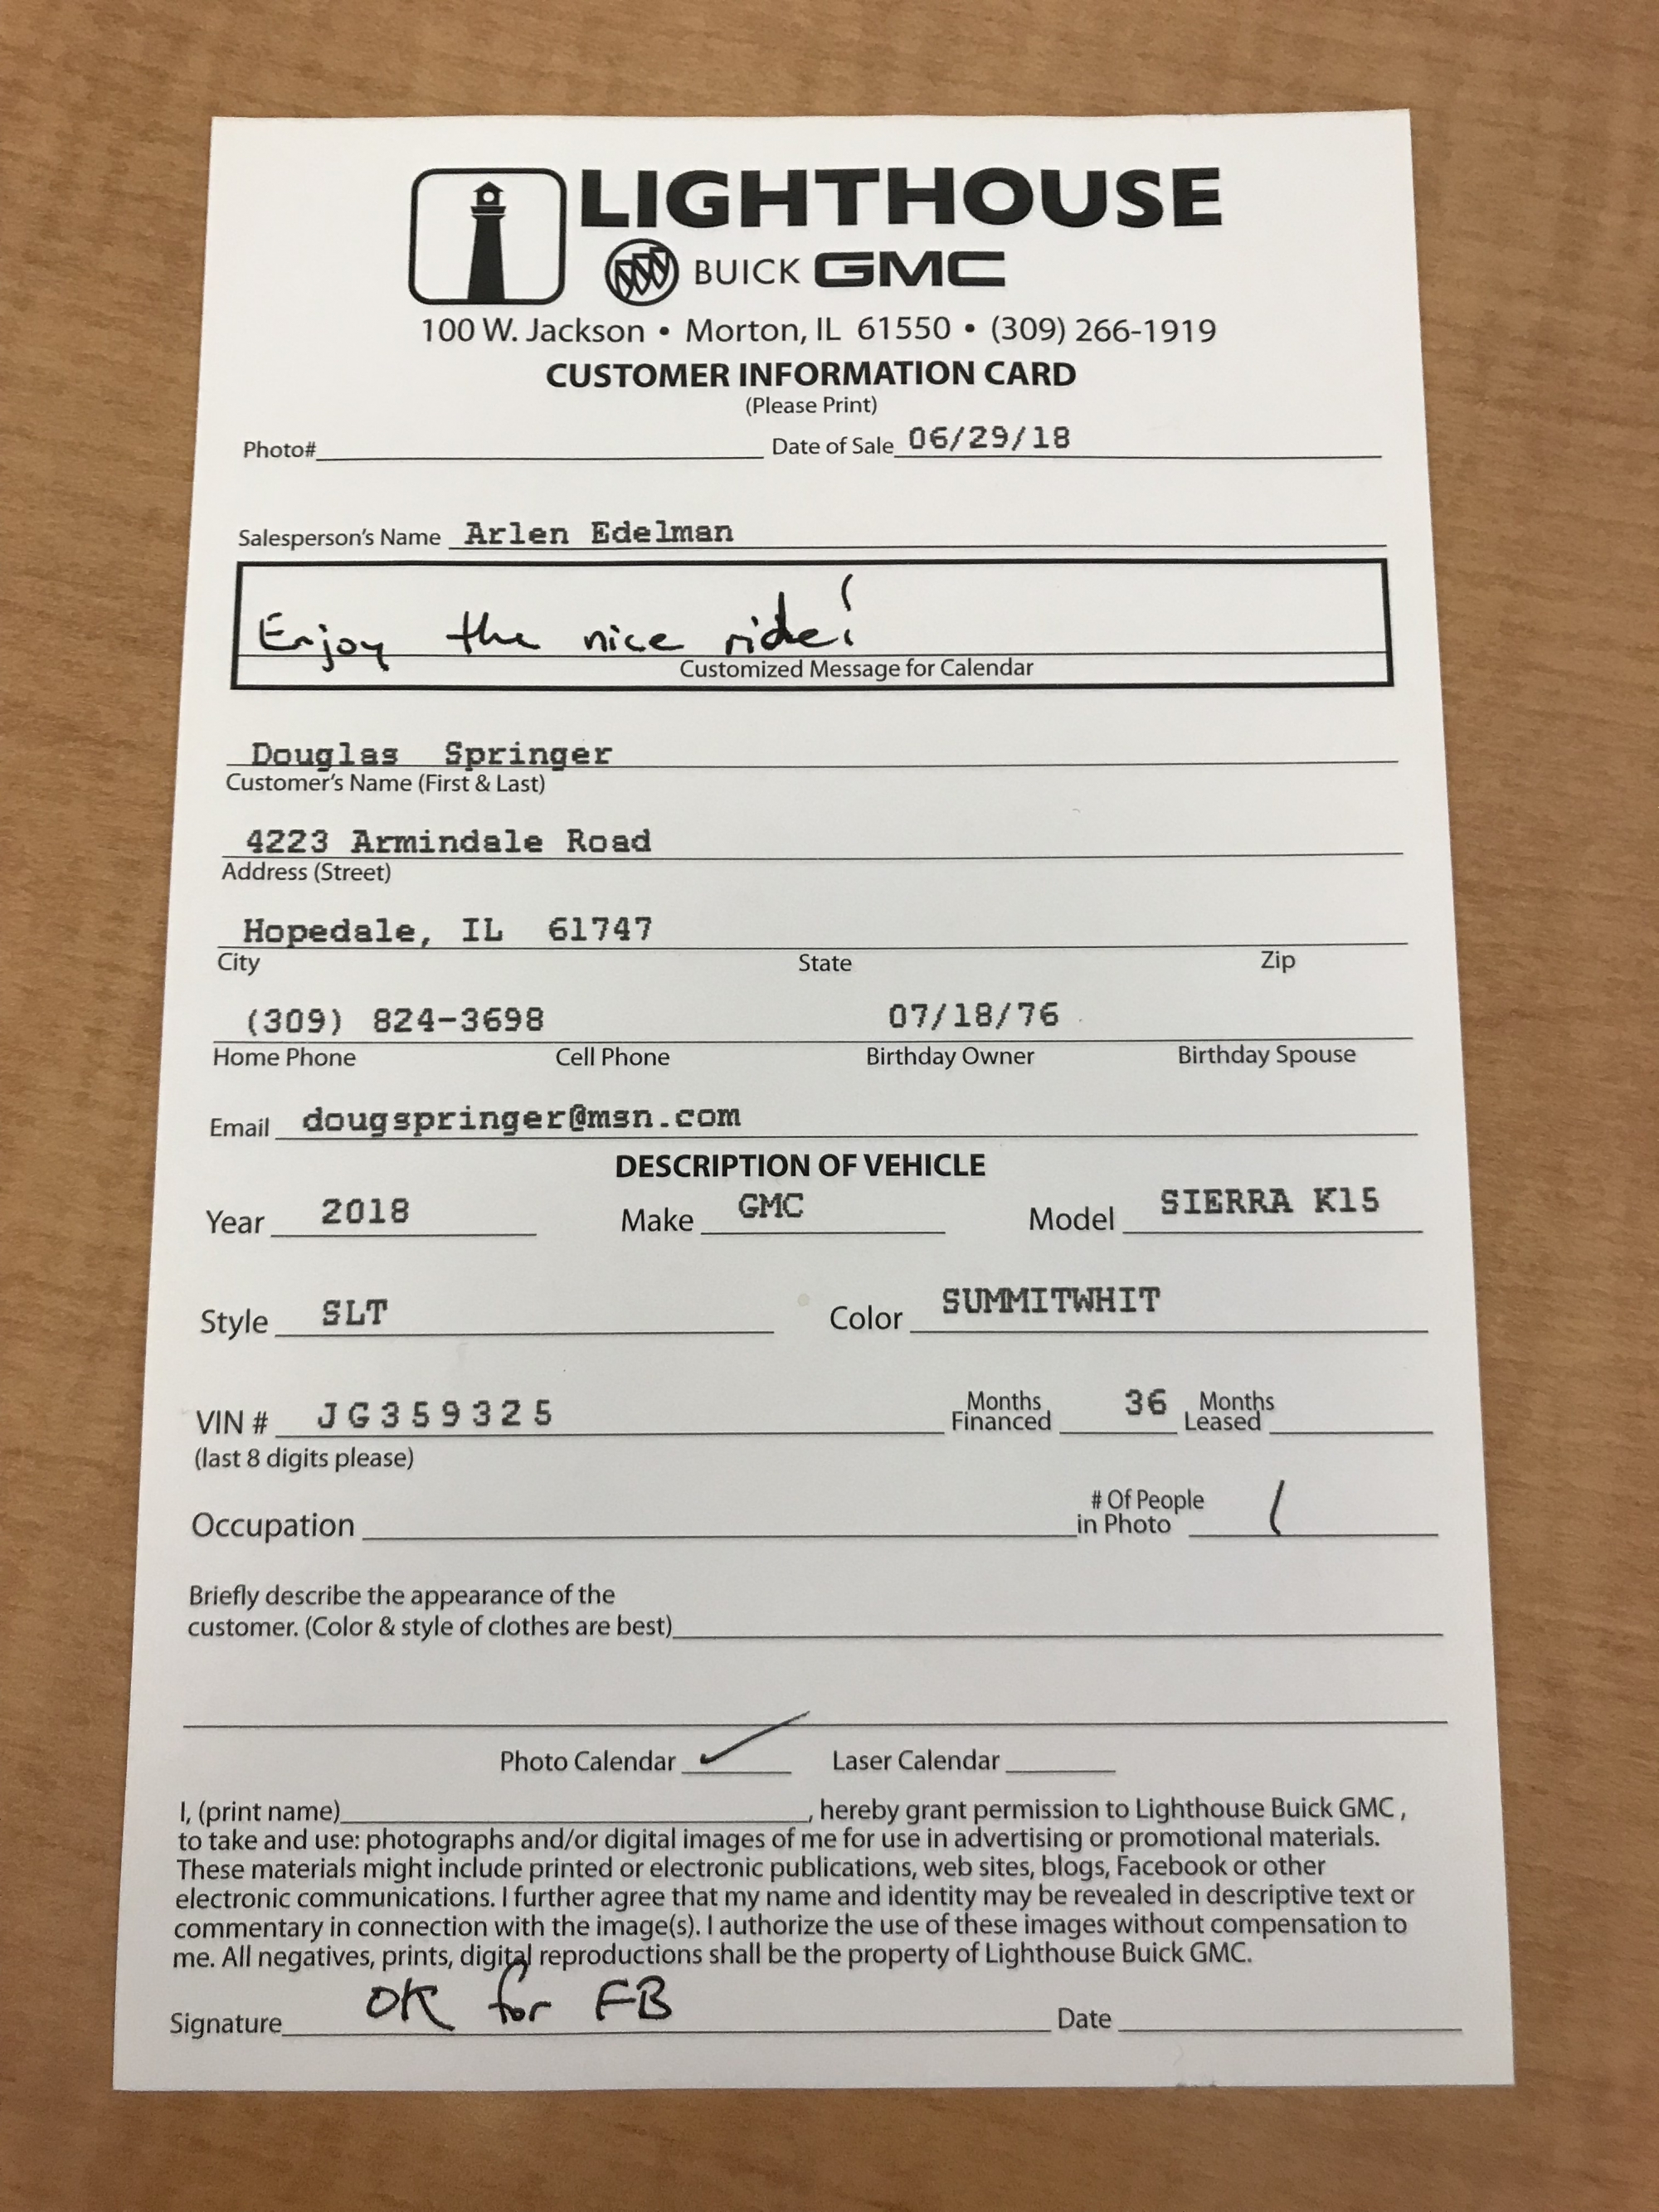 LIGHTHOUSE
BUICK GMC
100 W. Jackson • Morton, IL 61550 • (309) 266-1919
CUSTOMER INFORMATION CARD
(Please Print)
Photo# Date of Sale 06/29/18
Salesperson's Name Arlen Edelman
Enjoy the nice ride!
Customized Message for Calendar
Douglas Springer
Customer's Name (First & Last)
4223 Armindale Road
Address (Street)
Hopedale, IL 61747
City State Zip
(309) 824-3698 07/18/76
Home Phone Cell Phone Birthday Owner Birthday Spouse
Email dougspringer@msn.com
DESCRIPTION OF VEHICLE
Year 2018 Make GMC Model SIERRA K15
Style SLT Color SUMMITWHIT
VIN # JG359325 Months Financed 36 Months Leased
(last 8 digits please)
Occupation # Of People in Photo 1
Briefly describe the appearance of the
customer. (Color & style of clothes are best)
Photo Calendar ✓ Laser Calendar
I, (print name) , hereby grant permission to Lighthouse Buick GMC ,
to take and use: photographs and/or digital images of me for use in advertising or promotional materials.
These materials might include printed or electronic publications, web sites, blogs, Facebook or other
electronic communications. I further agree that my name and identity may be revealed in descriptive text or
commentary in connection with the image(s). I authorize the use of these images without compensation to
me. All negatives, prints, digital reproductions shall be the property of Lighthouse Buick GMC.
Signature OK for FB Date